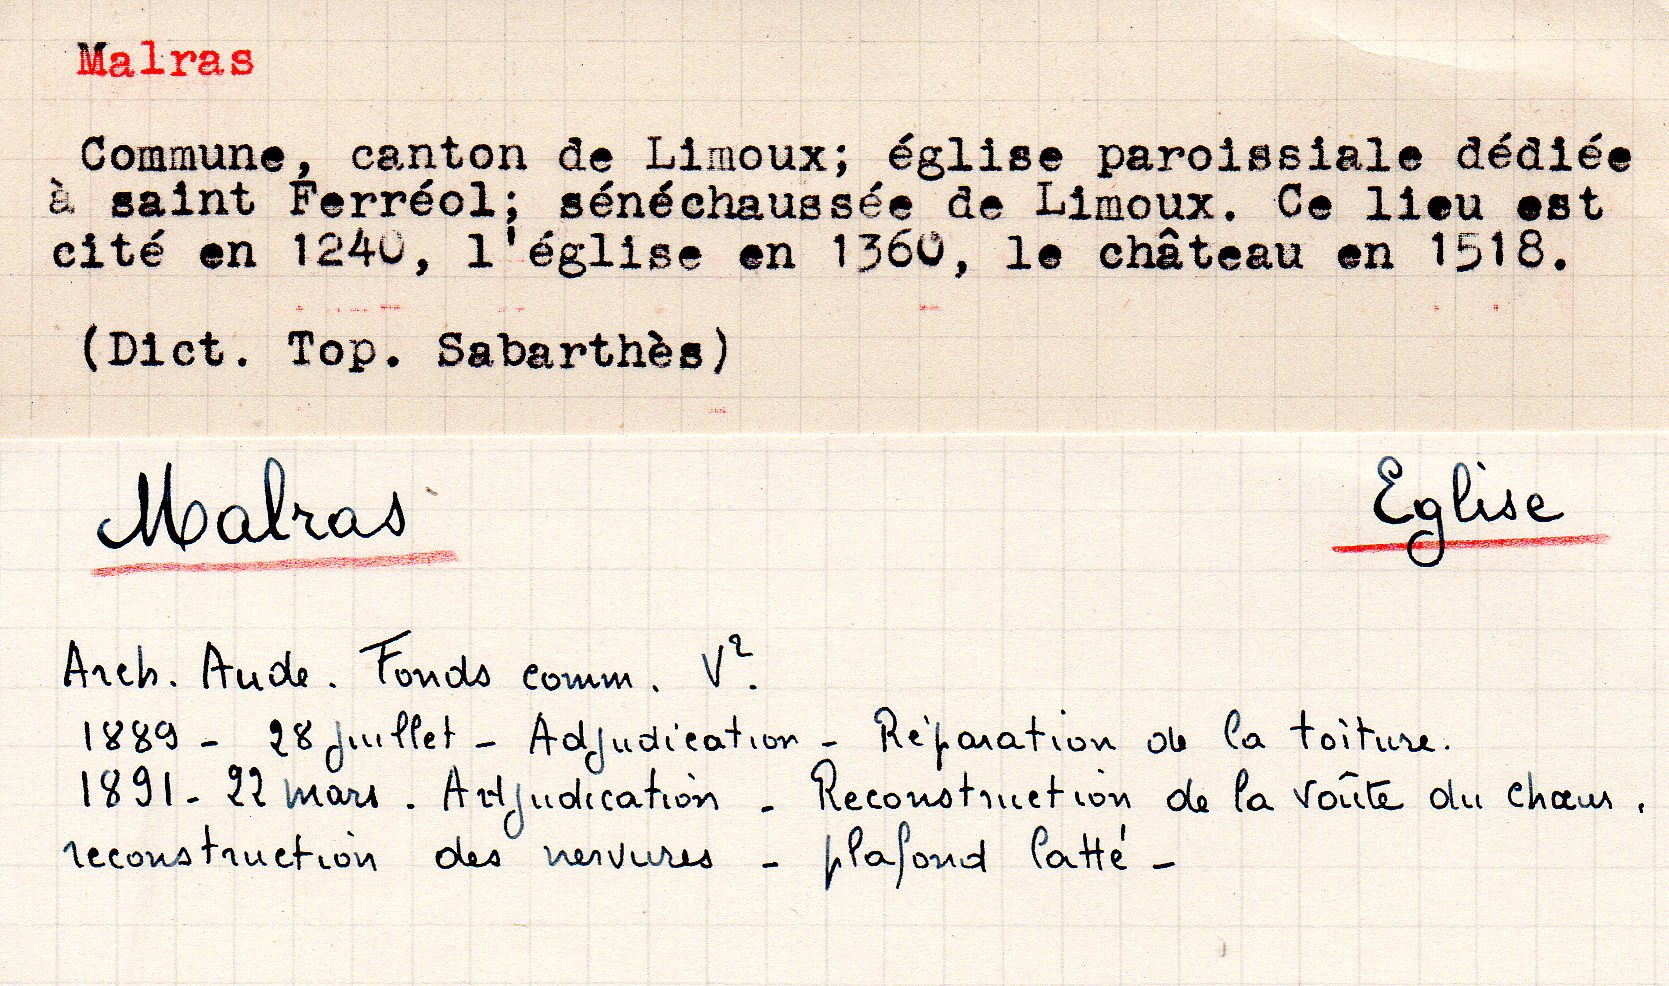 Malras
Commune, canton de Limoux; église paroissiale dédiée
à saint Ferréol; sénéchaussée de Limoux. Ce lieu est
cité en 1240, l'église en 1360, le château en 1518.
(Dict. Top. Sabarthès)
Malras Eglise
Arch. Aude. Fonds comm. V².
1889 - 28 juillet - Adjudication - Réparation de la toiture.
1891 - 22 mars. Adjudication - Reconstruction de la voûte du chœur.
reconstruction des nervures - plafond latté -